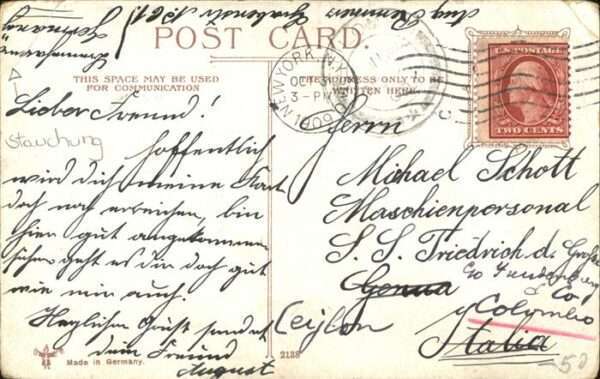 POST CARD.
THIS SPACE MAY BE USED
FOR COMMUNICATION
THE ADDRESS ONLY TO BE
WRITTEN HERE
NEW YORK, N.Y.
OCT 3
3-PM
1909
U.S. POSTAGE
TWO CENTS
Lieber Freund!
Stauchung
hoffentlich
wird dich meine Kart
doch noch erreichen, bin
hier gut angekommen
geht es dir doch gut
wie mir auch.
Herzlichen Gruß sendet
dein Freund
August
Herrn
Michael Schott
Maschienpersonal
S. S. Friedrich d. Große
Genua
& Co
Colombo
Ceylon
Italia
50
2138
Made in Germany.